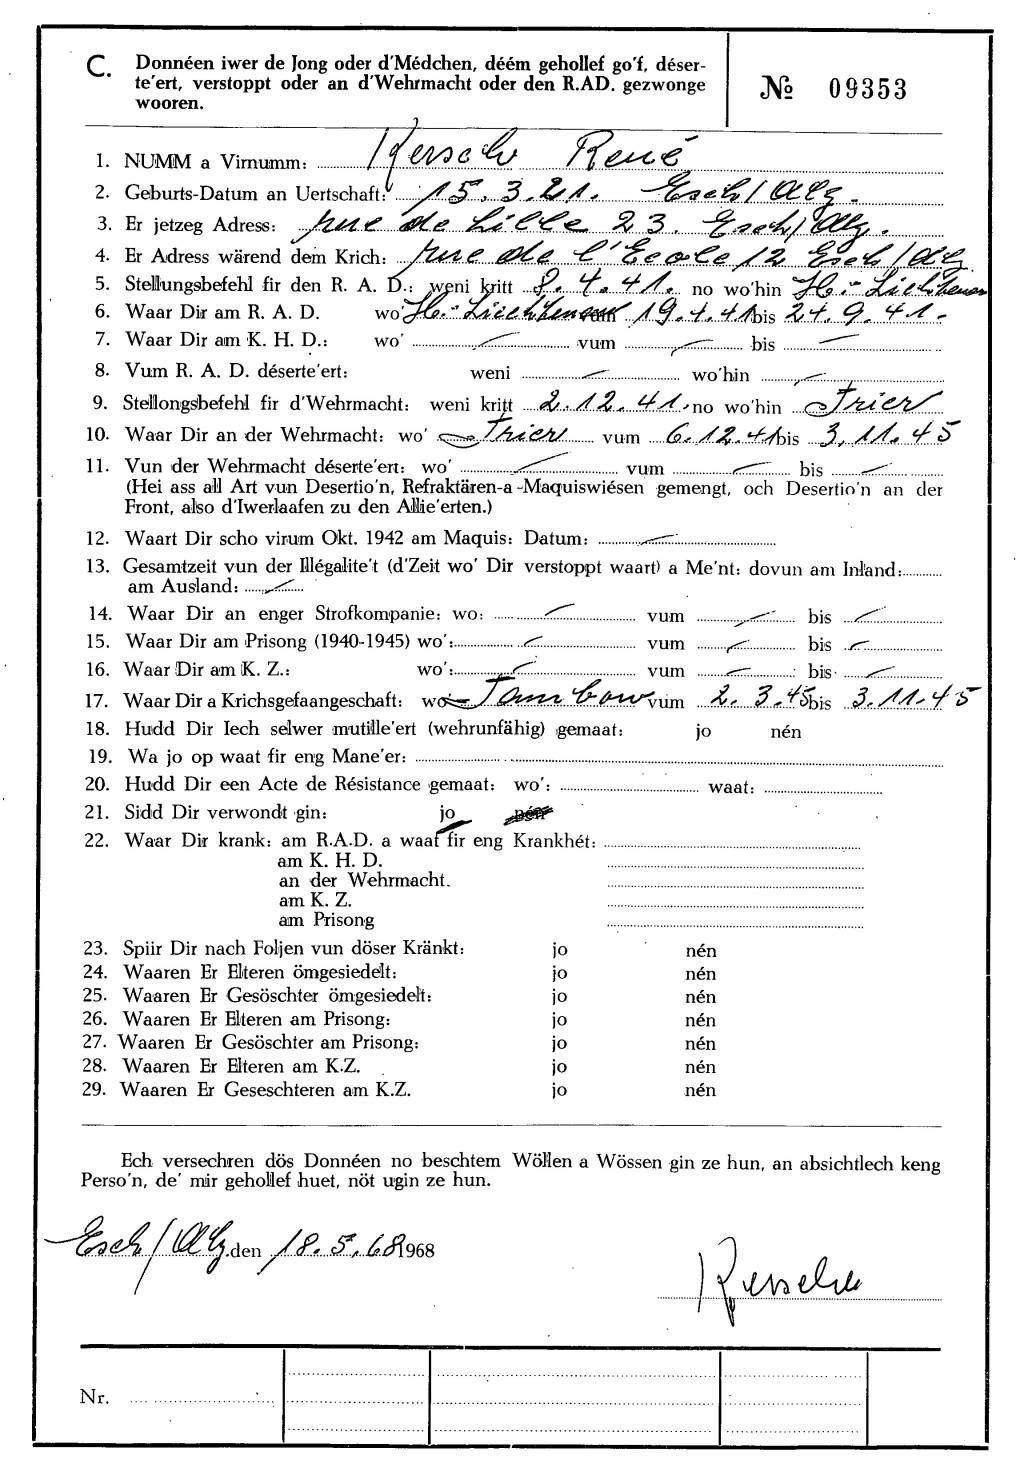 C. Donnéen iwer de Jong oder d'Médchen, déém gehollef go'f, déser-
te'ert, verstoppt oder an d'Wehrmacht oder den R.AD. gezwonge
wooren.
№ 09353
1. NUMM a Virnumm: Kersch René
2. Geburts-Datum an Uertschaft: 15.3.21. Esch/Alz.
3. Er jetzeg Adress: rue de Lille 23. Esch/Alz.
4. Er Adress wärend dem Krich: rue de l'Ecole 12 Esch/Alz
5. Stellungsbefehl fir den R. A. D.: weni kritt 8.4.41. no wo'hin
6. Waar Dir am R. A. D. wo' vum 19.4.41 bis 24.9.41.
7. Waar Dir am K. H. D.: wo' — vum — bis —
8. Vum R. A. D. déserte'ert: weni — wo'hin —
9. Stellongsbefehl fir d'Wehrmacht: weni kritt 2.12.41. no wo'hin Trier
10. Waar Dir an der Wehrmacht: wo' Trier vum 6.12.41 bis 3.11.45
11. Vun der Wehrmacht déserte'ert: wo' — vum — bis —
(Hei ass all Art vun Desertio'n, Refraktären-a-Maquiswiésen gemengt, och Desertio'n an der
Front, also d'Iwerlaafen zu den Allie'erten.)
12. Waart Dir scho virum Okt. 1942 am Maquis: Datum: —
13. Gesamtzeit vun der Illégalite't (d'Zeit wo' Dir verstoppt waart) a Me'nt: dovun am Inland:
am Ausland: —
14. Waar Dir an enger Strofkompanie: wo: — vum — bis —
15. Waar Dir am Prisong (1940-1945) wo': — vum — bis —
16. Waar Dir am K. Z.: wo': — vum — bis —
17. Waar Dir a Krichsgefaangeschaft: wo Tambow vum 2.3.45 bis 3.11.45
18. Hudd Dir Iech selwer mutille'ert (wehrunfähig) gemaat: jo nén
19. Wa jo op waat fir eng Mane'er:
20. Hudd Dir een Acte de Résistance gemaat: wo': waat:
21. Sidd Dir verwondt gin: jo nén
22. Waar Dir krank: am R.A.D. a waat fir eng Krankhét:
am K. H. D.
an der Wehrmacht.
am K. Z.
am Prisong
23. Spiir Dir nach Foljen vun döser Kränkt: jo nén
24. Waaren Er Elteren ömgesiedelt: jo nén
25. Waaren Er Gesöschter ömgesiedelt: jo nén
26. Waaren Er Elteren am Prisong: jo nén
27. Waaren Er Gesöschter am Prisong: jo nén
28. Waaren Er Elteren am K.Z. jo nén
29. Waaren Er Geseschteren am K.Z. jo nén
Ech versechren dös Donnéen no beschtem Wöllen a Wössen gin ze hun, an absichtlech keng
Perso'n, de' mir gehollef huet, nöt ugin ze hun.
Esch/Alz. den 18.5.68 1968
Kersch
Nr.